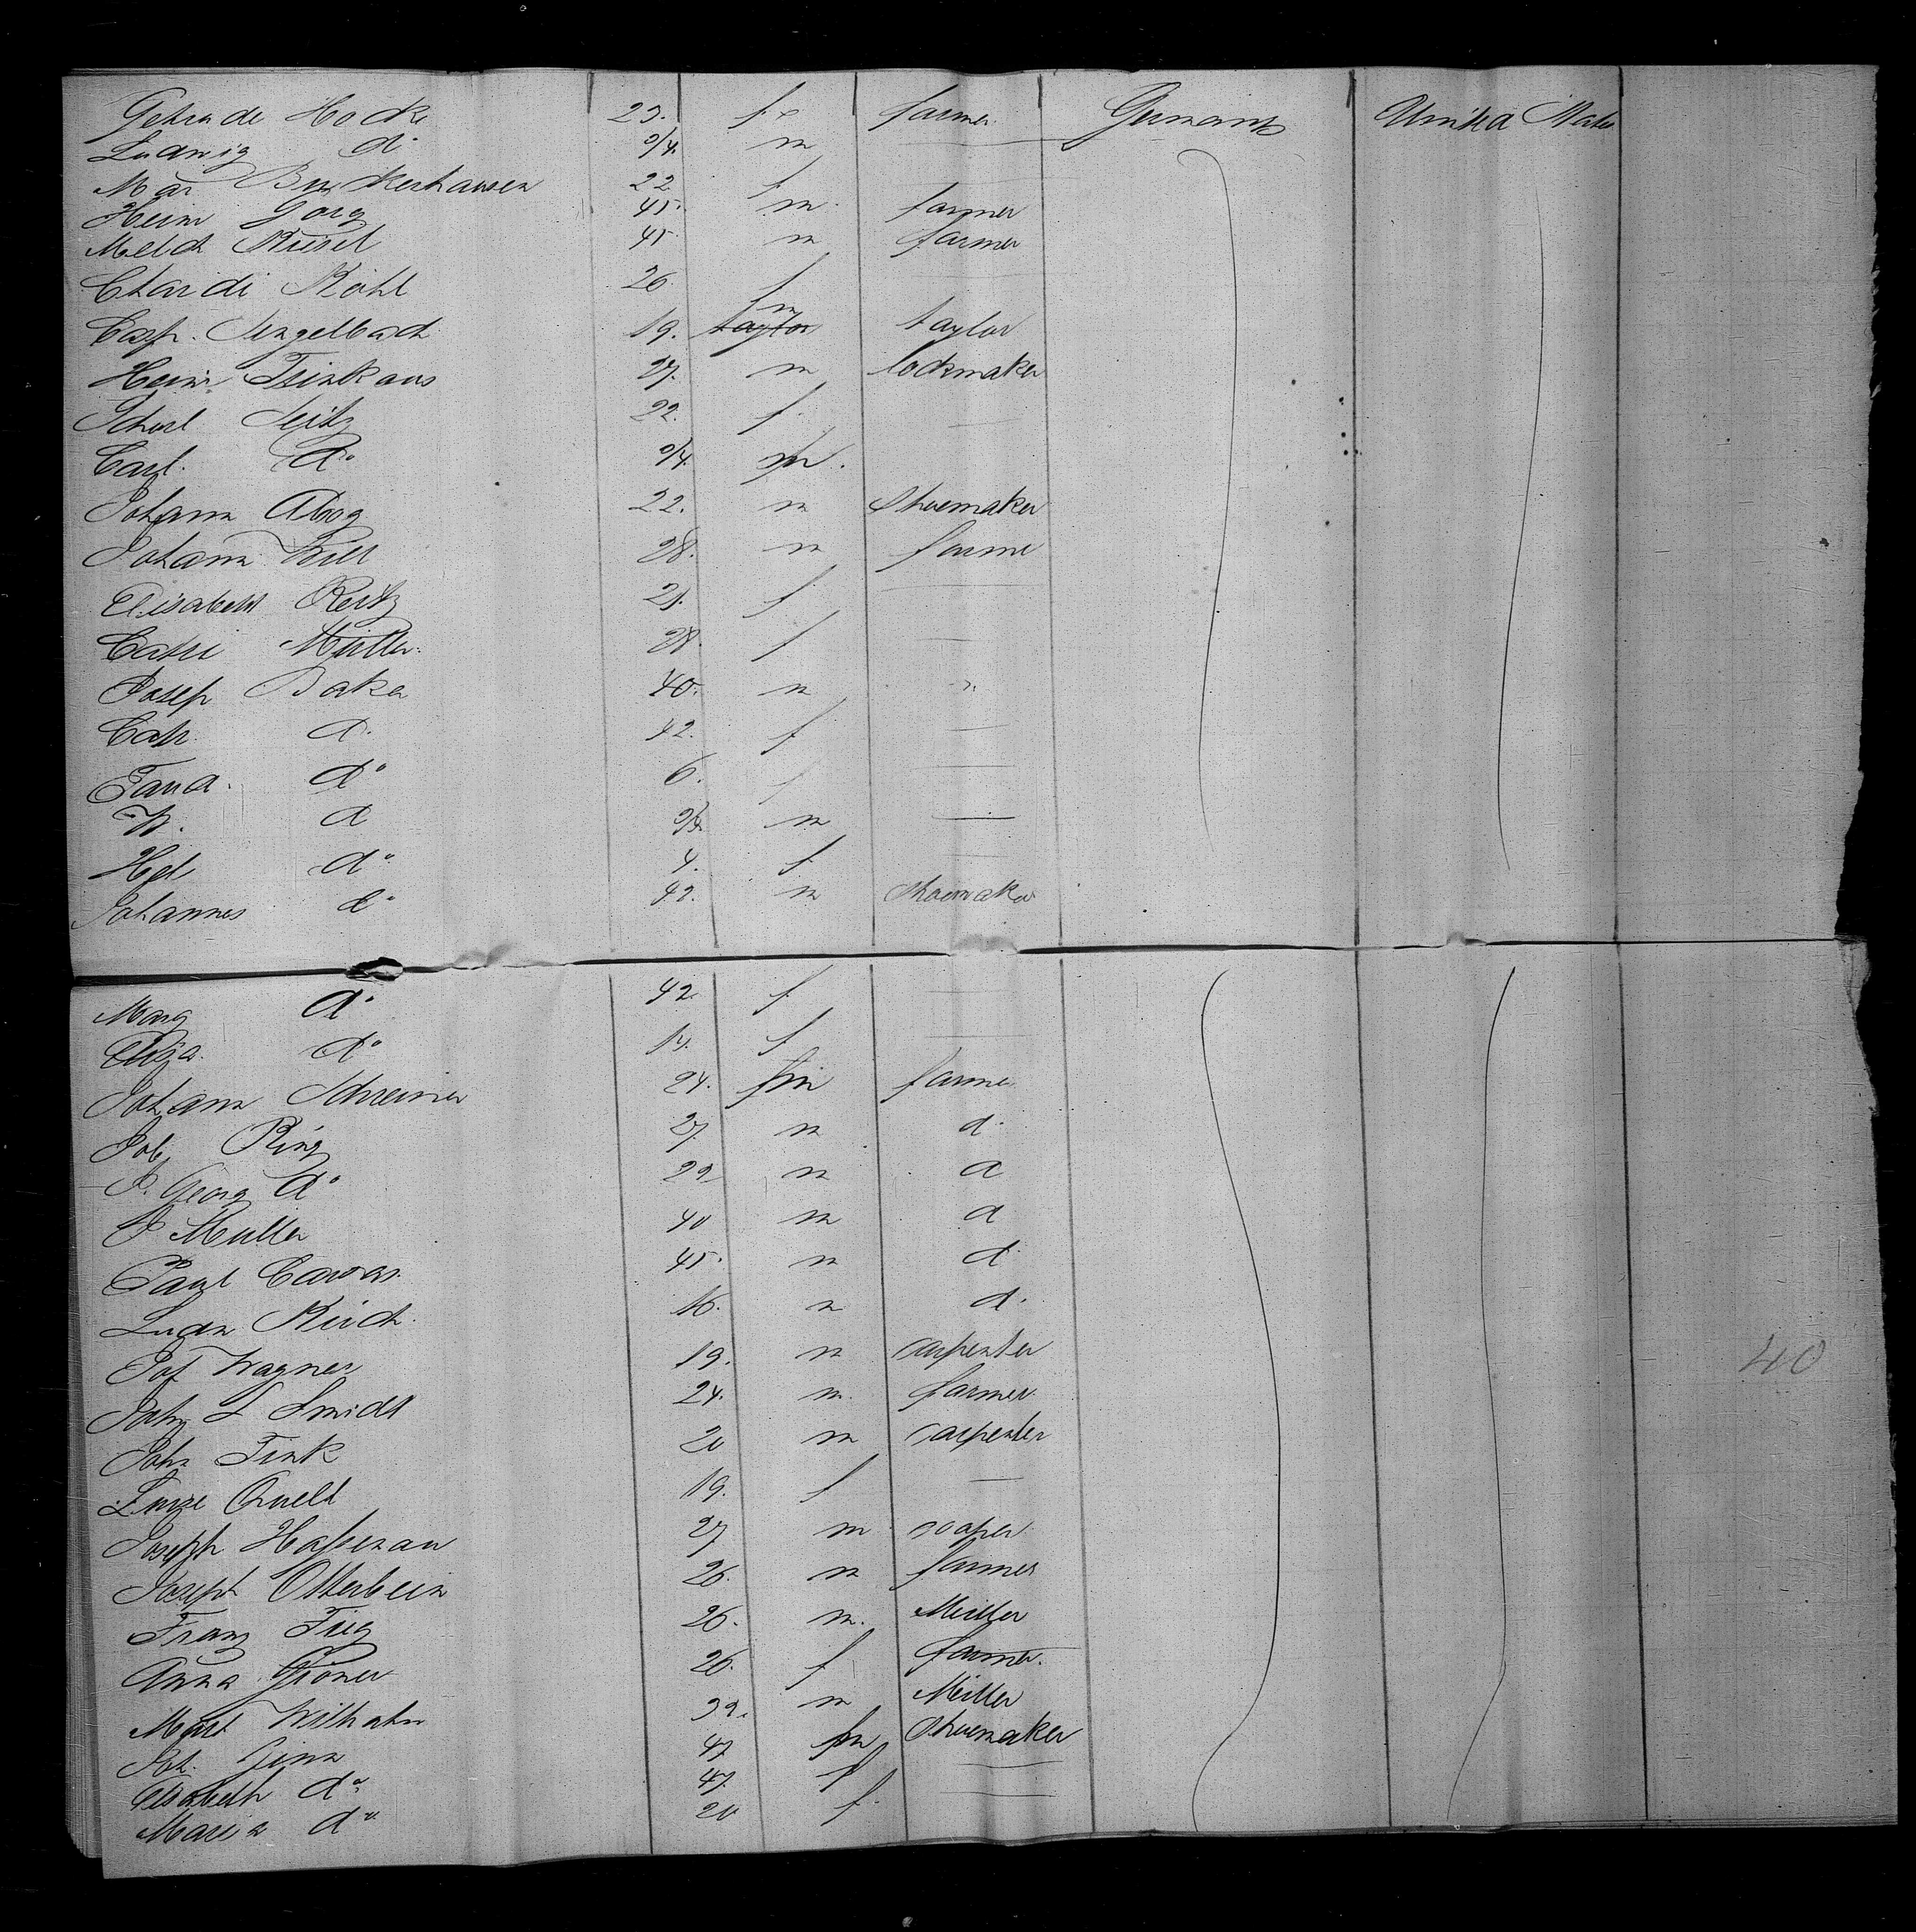 Getrude Hocke 23. f farmer Germany United States
Ludwig do 3/4. m
Mar Burckerhausen 22 f
Heinr Jorg 45. m farmer
Melch Riesel 45 m farmer
Röhl 26 f
Casp. Sengelbach 19. m taylor
Heinr Trinkaus 27. m lockmaker
Seitz 22. f
Carl do 3/4. m.
Johann 22. m Shoemaker
Johann Will 28. m farme
Elisabeth Reitz 21. f
Cathi Müller. 28. f
Josep Baker 40. m "
Cath do 42. f
do 6. f
W. d m
Hel do 4. f
Johannes do 42. m Shoemaker
Marg do 42. f
Eliza. do 14. f
Johann Schreiner 24. m farmer
Job Ring 27. m do
J. Georg do 22 m d
J Muller 40 m d
Paul 45. m d
Ludw Kirch 16. m d.
Jof Wagner 19. m carpenter
John L Smidt 24. m farmer
John Fink 20 m carpenter
Luize Quell 19. f
Joseph Hassenau 27 m cooper
Joseph Otterbein 26. m farmer
Franz Fieg 26. m. Miller
Anna Gröner 26. f farmer.
Mart Wilhahn 32. m Miller
Joh. Jinn 47 m Shoemaker
Elsabeth do 47. f
Maria do 20 f
40